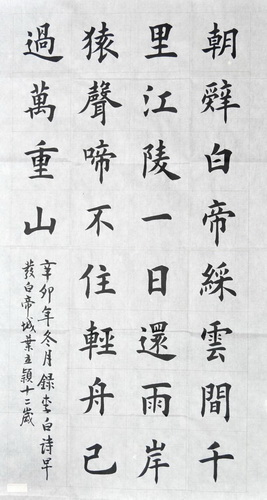 朝辤白帝綵雲間千
里江陵一日還雨岸
猿聲啼不住輕舟已
過萬重山
辛卯年冬月録李白詩早
發白帝城葉立穎十二歲